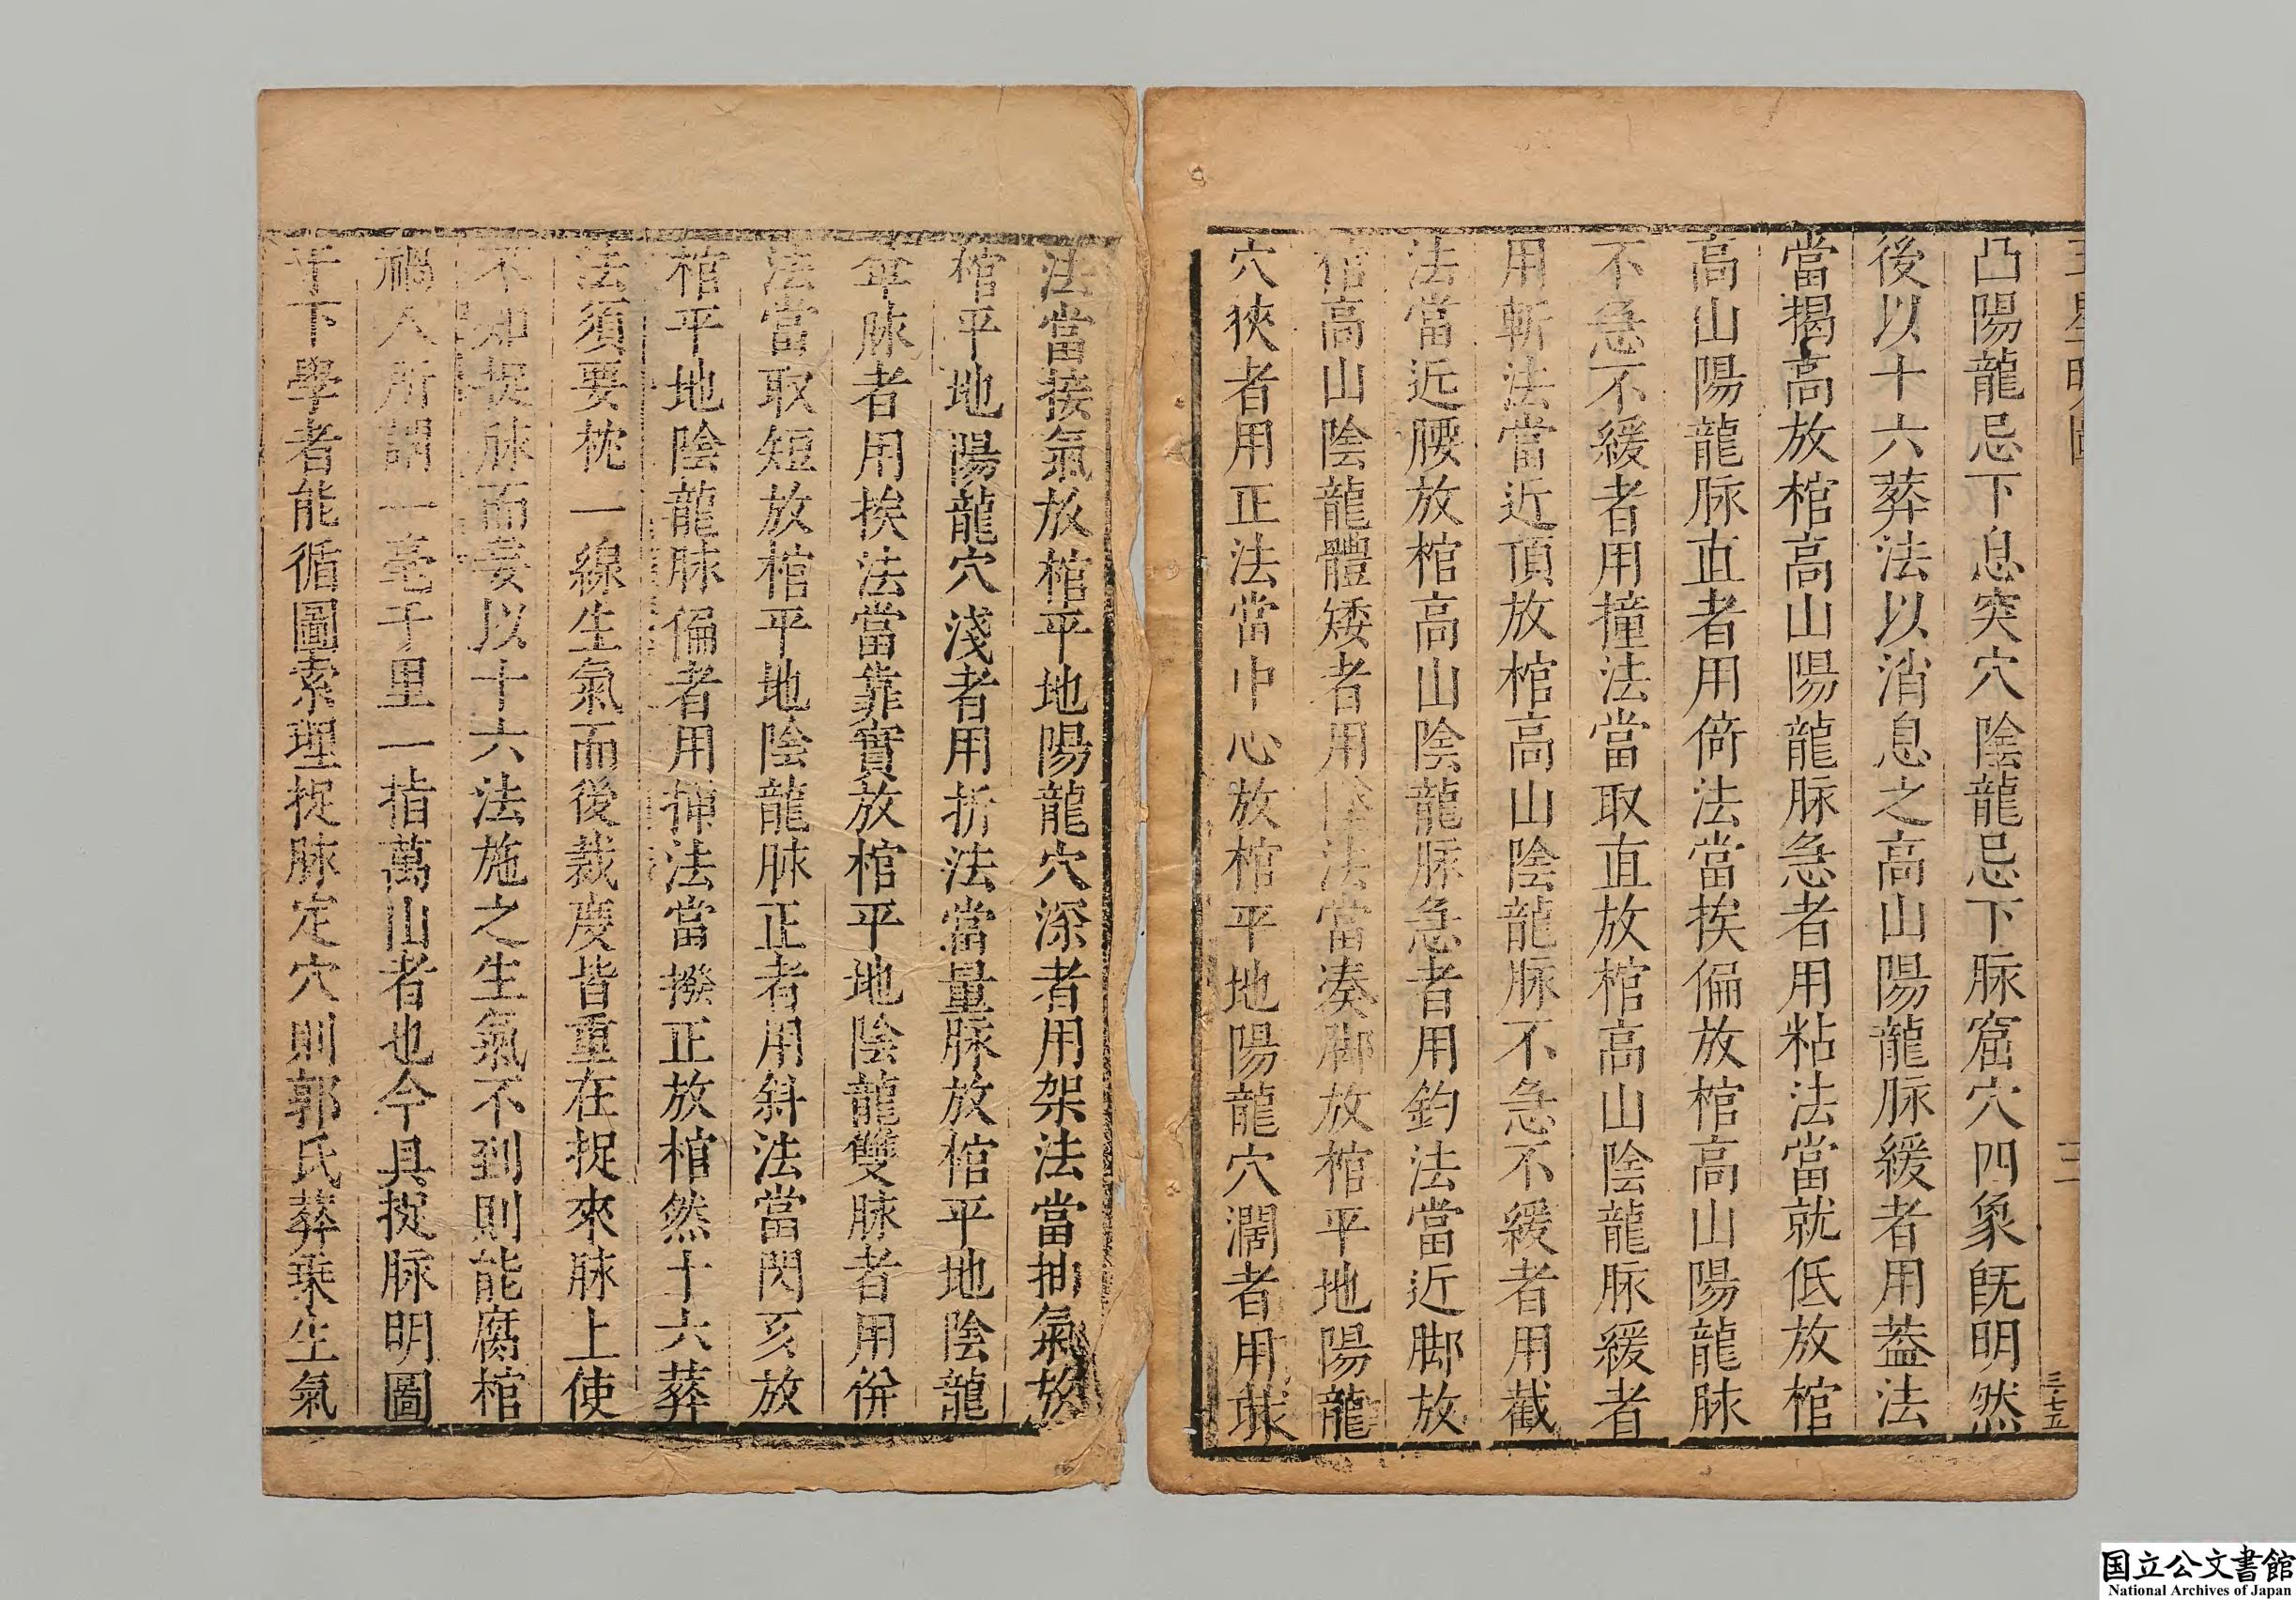 凸陽龍忌下息突穴陰龍忌下脉窟穴四象旣明然
後以十六葬法以消息之高山陽龍脉緩者用葢法
當揭高放棺高山陽龍脉急者用粘法當就低放棺
高山陽龍脉直者用倚法當挨偏放棺高山陽龍脉
不急不緩者用撞法當取直放棺高山陰龍脉緩者
用斬法當近頂放棺高山陰龍脉不急不緩者用截
法當近腰放棺高山陰龍脉急者用釣法當近脚放
棺高山陰龍體矮者用法當凑脚放棺平地陽龍
穴狹者用正法當中心放棺平地陽龍穴濶者用球
法當接氣放棺平地陽龍穴深者用架法當抽氣放
棺平地陽龍穴淺者用折法當量脉放棺平地陰龍
单脉者用挨法當靠實放棺平地陰龍雙脉者用倂
法當取短放棺平地陰龍脉正者用斜法當閃亥放
棺平地陰龍脉偏者用揷法當撥正放棺然十六葬
法須要枕一線生氣而後裁度皆重在捉來脉上使
不知捉脉而妄以十六法施之生氣不到則能腐棺
禍人所謂一毫千里一指萬山者也今具捉脉明圖
于下學者能循圖索理捉脉定穴則郭氏葬乗生氣
三
三七五
国立公文書館
National Archives of Japan